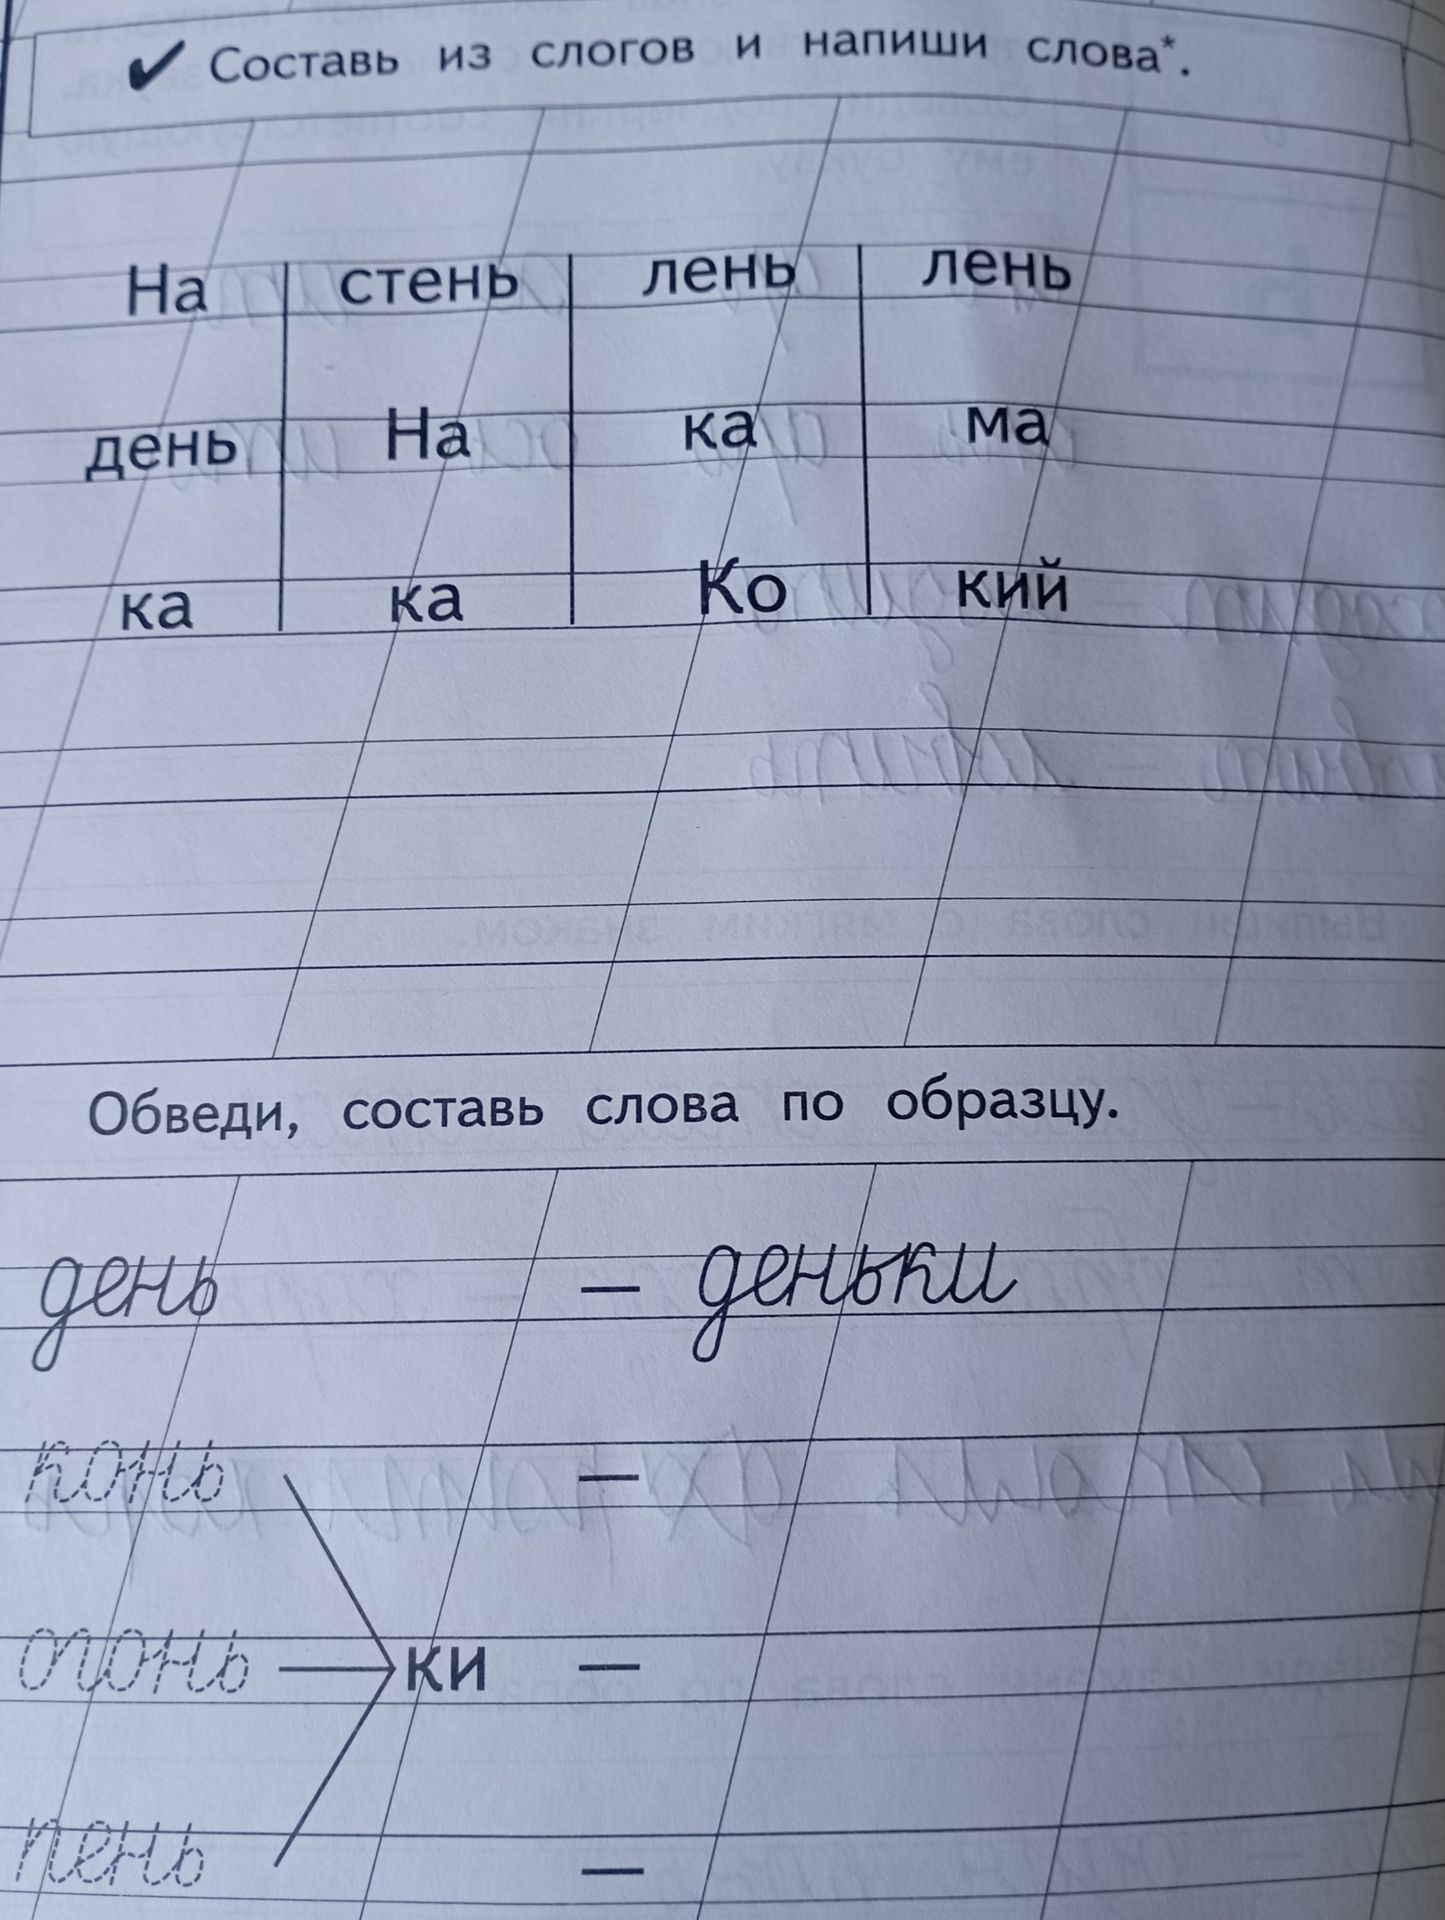 ✔ Составь из слогов и напиши слова*.
На стень лень лень
день На ка ма
ка ка Ко кий
Обведи, составь слова по образцу.
день — деньки
конь —
огонь ки —
пень —